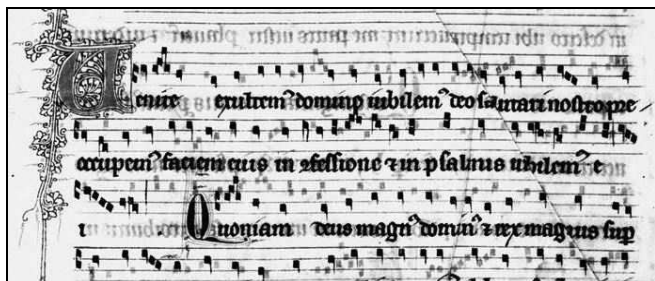 Venite exultem⁹ domino iubilem⁹ deo salutari nostro pre
occupem⁹ faciem eius in ꝯfessione ⁊ in psalmis iubilem⁹ e
i Quoniam deus magn⁹ domin⁹ ⁊ rex magnus sup